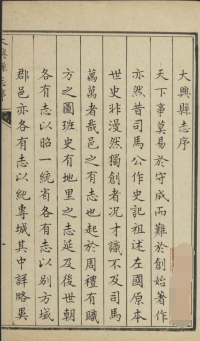 大興縣志序
天下事莫易於守成而難於創始著作
亦然昔司馬公作史記祖述左國原本
世史非漫然獨創者况才識不及司馬
萬萬者哉邑之有志也起於周禮有職
方之圖班史有地里之志延及後世朝
各有志以昭一統省各有志以別方域
郡邑亦各有志以紀專城其中詳略異
大興縣志序